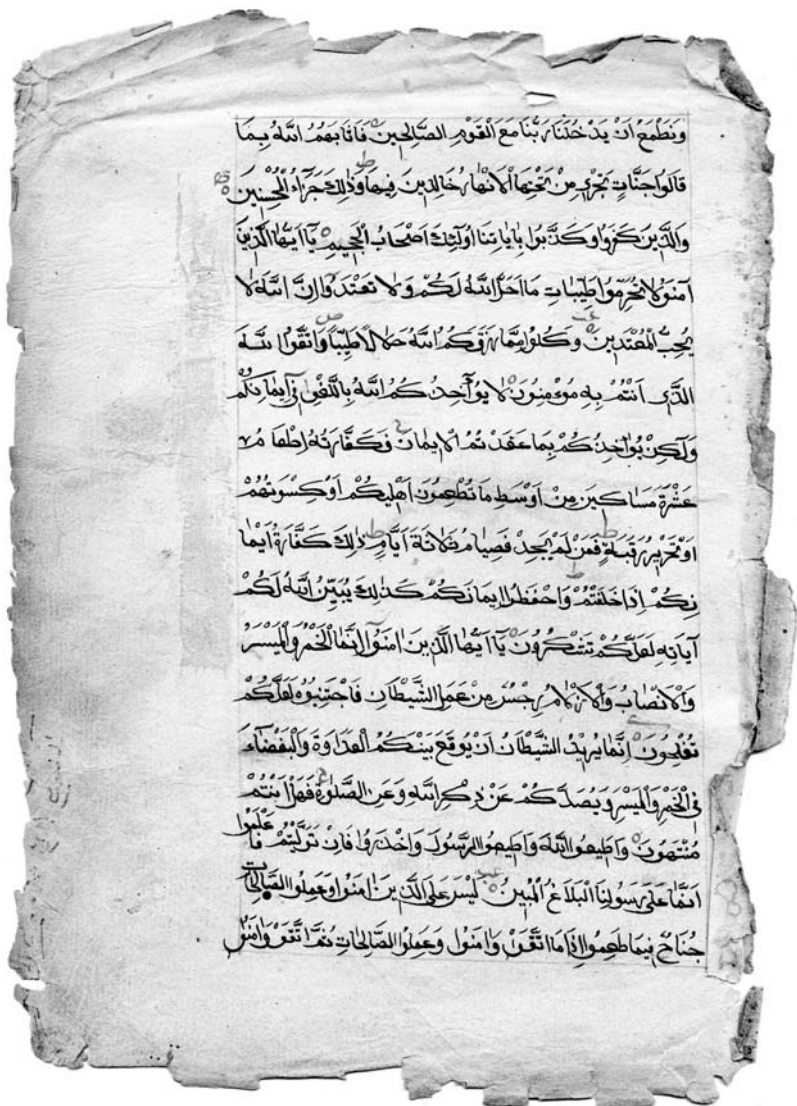 ونَطْمَعُ اَنْ يَدْخُلَنَا رَبُّنَا مَعَ الْقَوْمِ الصَّالِحِينَ فَاَثَابَهُمُ اللّٰهُ بِمَا
قَالُوا جَنَّاتٍ تَجْرِي مِنْ تَحْتِهَا الْاَنْهَارُ خَالِدِينَ فِيهَا وَذٰلِكَ جَزَآءُ الْمُحْسِنِينَ
وَالَّذِينَ كَفَرُوا وَكَذَّبُوا بِاٰيَاتِنَا اُولٰئِكَ اَصْحَابُ الْجَحِيمِ يَآ اَيُّهَا الَّذِينَ
آمَنُو لَا تُحَرِّمُوا طَيِّبَاتِ مَا اَحَلَّ اللّٰهُ لَكُمْ وَلَا تَعْتَدُوا اِنَّ اللّٰهَ لَا
يُحِبُّ الْمُعْتَدِينَ وَكُلُوا مِمَّا رَزَقَكُمُ اللّٰهُ حَلَالًا طَيِّبًا وَاتَّقُوا للّٰهَ
الَّذِي اَنْتُمْ بِهِ مُؤْمِنُونَ لَا يُؤَآخِذُكُمُ اللّٰهُ بِاللَّغْوِ فِي اَيْمَانِكُمْ
وَلٰكِنْ يُؤَاخِذُكُمْ بِمَا عَقَدْتُمُ الْاِيمَانَ فَكَفَّارَتُهُ اِطْعَامُ
عَشَرَةِ مَسَاكِينَ مِنْ اَوْسَطِ مَا تُطْعِمُونَ اَهْلِيكُمْ اَوْ كِسْوَتُهُمْ
اَوْ تَحْرِيرُ رَقَبَةٍ فَمَنْ لَمْ يَجِدْ فَصِيَامُ ثَلَاثَةِ اَيَّامٍ ذٰلِكَ كَفَّارَةُ اَيْمَا
نِكُمْ اِذَا حَلَفْتُمْ وَاحْفَظُوا اِيمَانَكُمْ كَذٰلِكَ يُبَيِّنُ اللّٰهُ لَكُمْ
آيَاتِهِ لَعَلَّكُمْ تَشْكُرُونَ يَآ اَيُّهَا الَّذِينَ اٰمَنُوا اِنَّمَا الْخَمْرُ وَالْمَيْسَرُ
وَالْاَنْصَابُ وَالْاَزْلَامُ رِجْسٌ مِنْ عَمَلِ الشَّيْطَانِ فَاجْتَنِبُوهُ لَعَلَّكُمْ
تُفْلِحُونَ اِنَّمَا يُرِيدُ الشَّيْطَانُ اَنْ يُوقَعَ بَيْنَكُمُ الْعَدَاوَةَ وَالْبَغْضَآءَ
فِي الْخَمْرِ وَالْمَيْسَرِ وَيَصُدَّكُمْ عَنْ ذِكْرِ اللّٰهِ وَعَنِ الصَّلٰوةِ فَهَلْ اَنْتُمْ
مُنْتَهُونَ وَاَطِيعُوا اللّٰهَ وَاَطِيعُوا الرَّسُولَ وَاحْذَرُوا فَاِنْ تَوَلَّيْتُمْ فَاعْلَمُوا
اَنَّمَا عَلَى رَسُولِنَا الْبَلَاغُ الْمُبِينُ لَيْسَ عَلَى الَّذِينَ اٰمَنُوا وَعَمِلُوا الصَّالِحَاتِ
جُنَاحٌ فِيمَا طَعِمُوا اِذَا مَا اتَّقَوْا وَاٰمَنُوا وَعَمِلُوا الصَّالِحَاتِ ثُمَّ اتَّقَوْ وَاٰمَنُوا